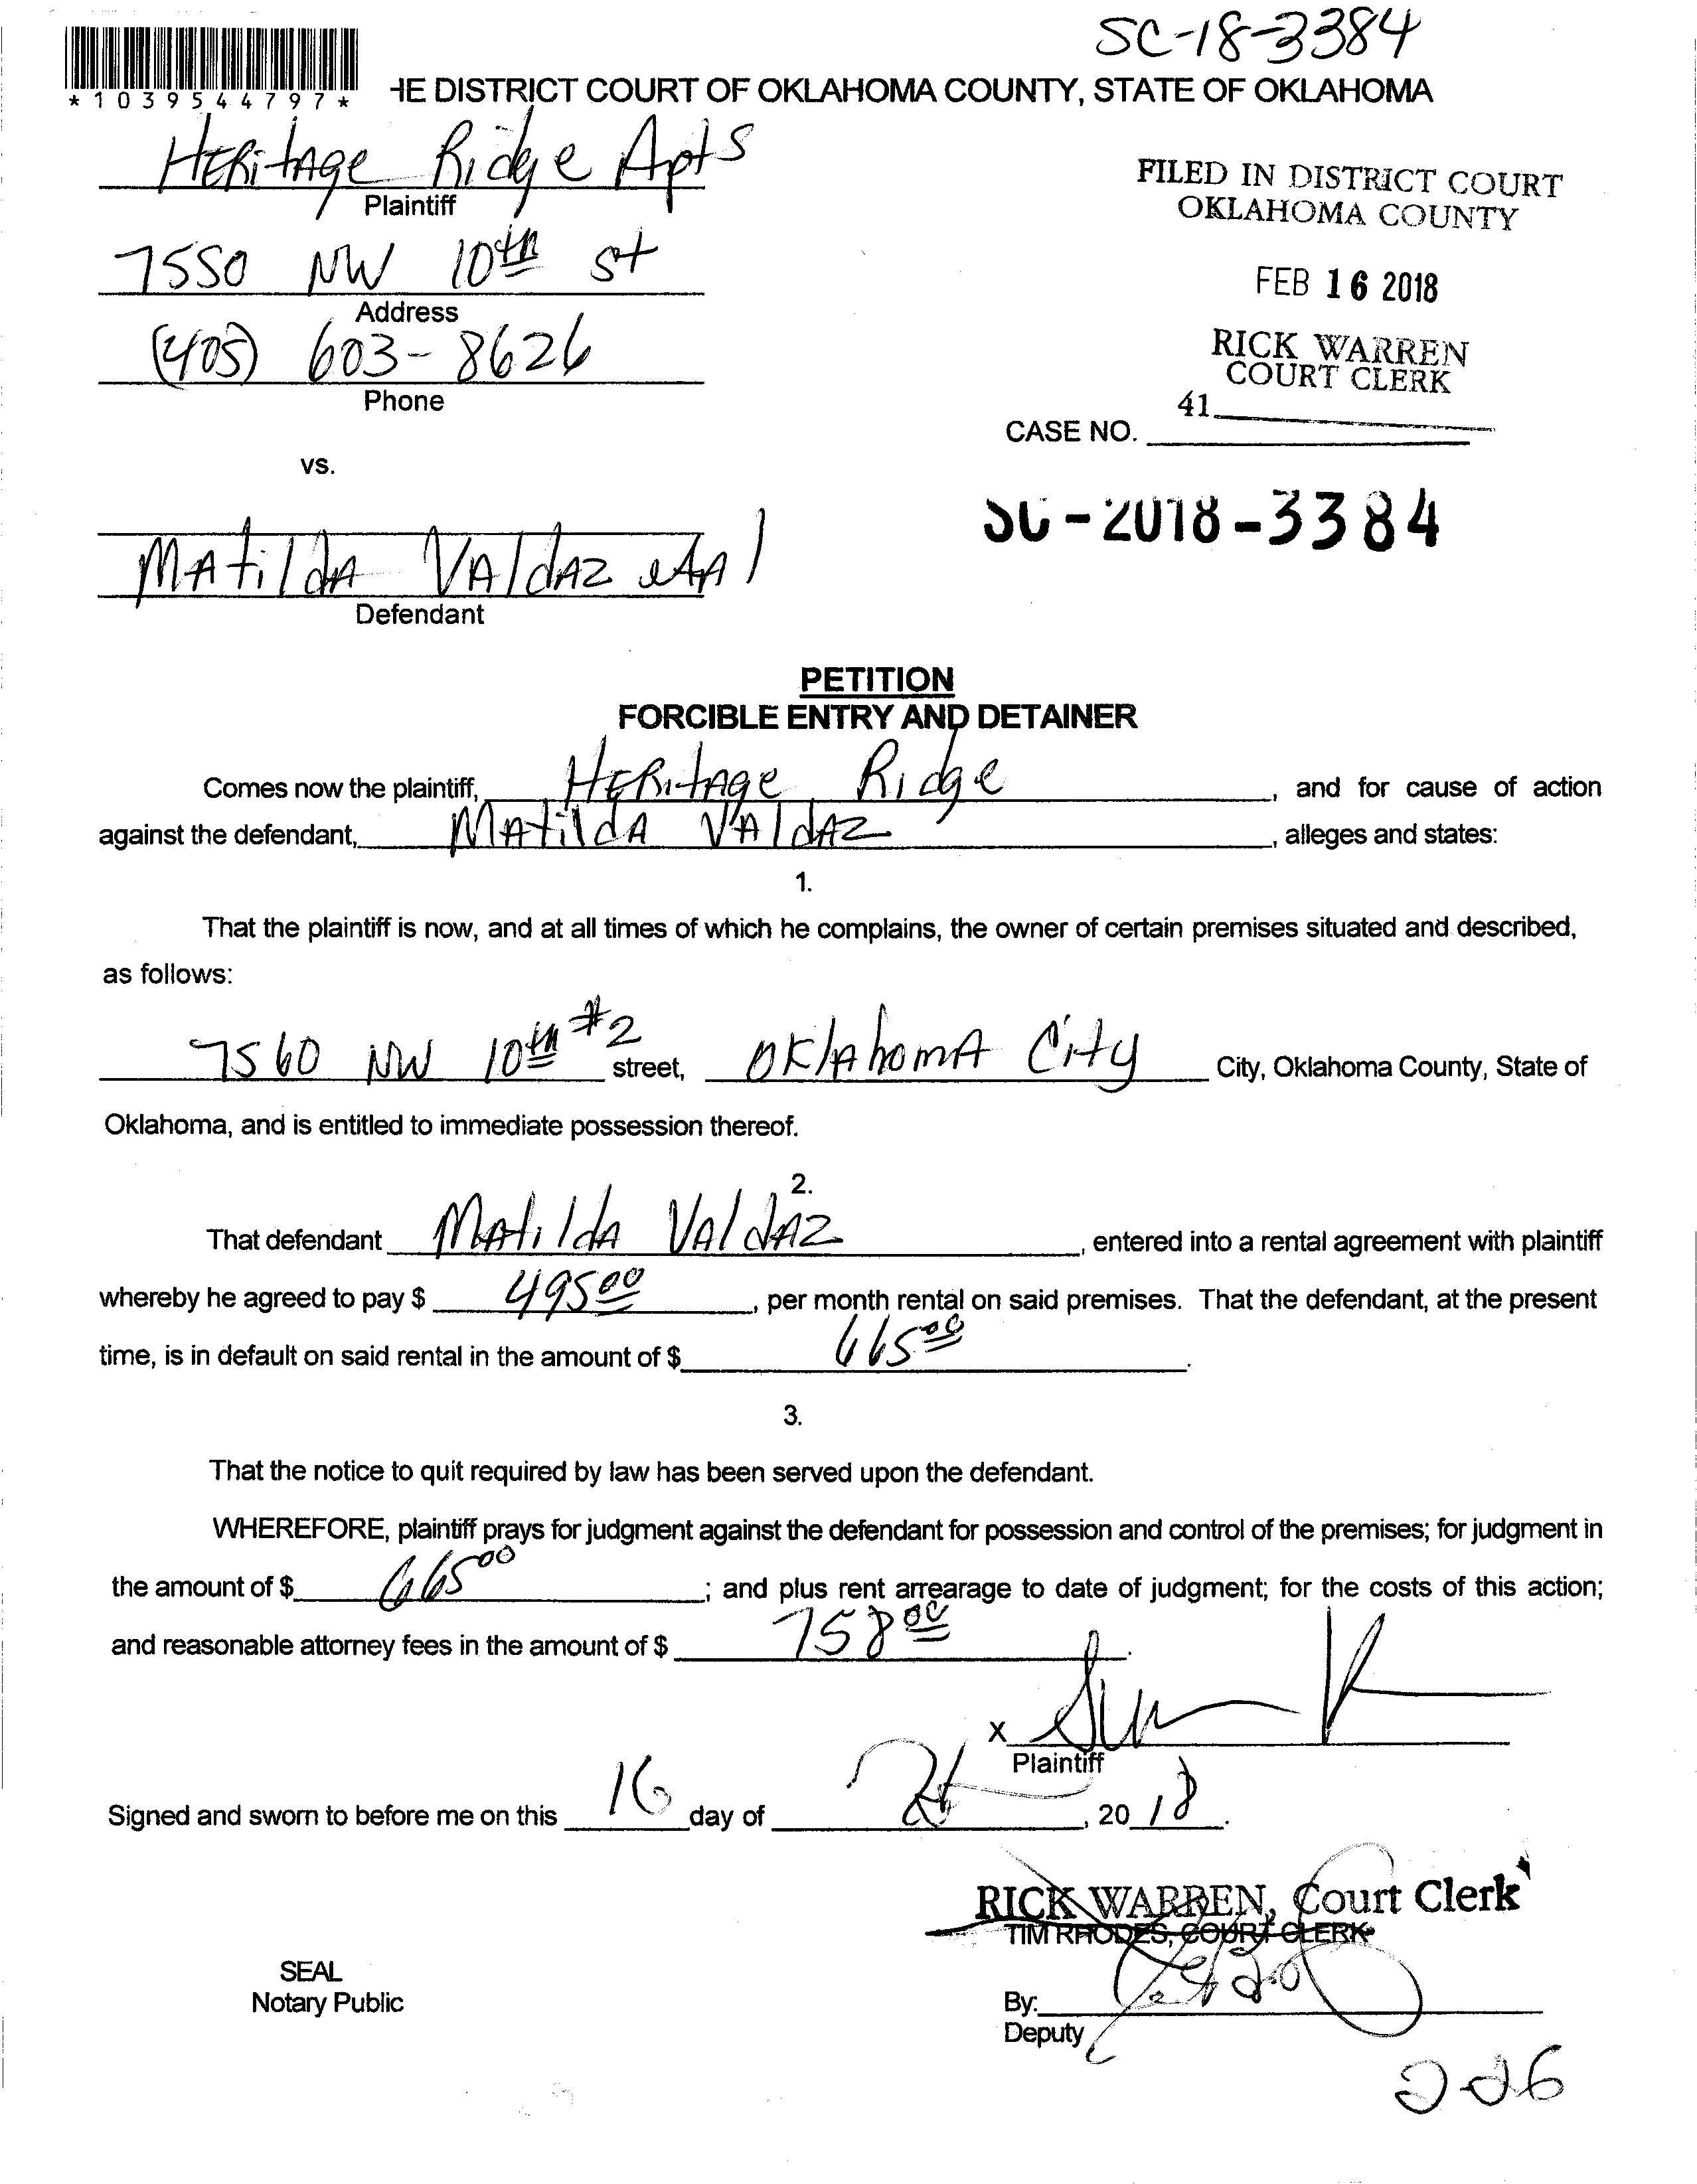 SC-18-3384
*1039544797*
HE DISTRICT COURT OF OKLAHOMA COUNTY, STATE OF OKLAHOMA
Heritage Ridge Apts
Plaintiff
FILED IN DISTRICT COURT
OKLAHOMA COUNTY
7550 NW 10th St
Address
FEB 16 2018
(405) 603-8626
Phone
RICK WARREN
COURT CLERK
41
CASE NO.
vs.
SC-2018-3384
Matilda Valdaz etal
Defendant
PETITION
FORCIBLE ENTRY AND DETAINER
Comes now the plaintiff, Heritage Ridge, and for cause of action
against the defendant, Matilda Valdaz, alleges and states:
1.
That the plaintiff is now, and at all times of which he complains, the owner of certain premises situated and described,
as follows:
7560 NW 10th #2 street, Oklahoma City City, Oklahoma County, State of
Oklahoma, and is entitled to immediate possession thereof.
2.
That defendant Matilda Valdaz, entered into a rental agreement with plaintiff
whereby he agreed to pay $ 495 00, per month rental on said premises. That the defendant, at the present
time, is in default on said rental in the amount of $ 665 00.
3.
That the notice to quit required by law has been served upon the defendant.
WHEREFORE, plaintiff prays for judgment against the defendant for possession and control of the premises; for judgment in
the amount of $ 665 00; and plus rent arrearage to date of judgment; for the costs of this action;
and reasonable attorney fees in the amount of $ 758 00.
X
Plaintiff
Signed and sworn to before me on this 16 day of , 20 18.
RICK WARREN, Court Clerk
TIM RHODES, COURT CLERK
SEAL
Notary Public
By:
Deputy
226